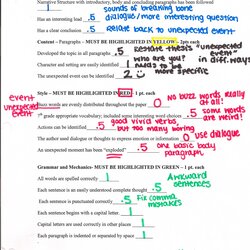 Narrative structure with introductory, body and concluding paragraphs has been followed
1 sounds of breaking bone
Has an interesting lead .5 dialogue/more interesting question
Has a clear conclusion .5 relate back to unexpected event
Content – Paragraphs – MUST BE HIGHLIGHTED IN YELLOW- 2pt. each
Developed the topic in all paragraphs .5 Restate thesis "unexpected event" in diff. way!
Character and setting are easily identified 1 who are you? needs to be more specific
The unexpected event can be identified 2
Style – MUST BE HIGHLIGHTED IN RED- 1 pt. each
event
unexpected event
Buzz words are evenly distributed throughout the paper 0 NO buzz words really at all!
7th grade appropriate vocabulary; included some interesting word choices .5 some words are weird!
Actions can be identified .5 good vivid verbs, but too many wording
The author used dialogue or thoughts to express emotion or information 0 use dialogue
An unexpected moment has been "exploded" .5 one basic body paragraph
Grammar and Mechanics- MUST BE HIGHLIGHTED IN GREEN – 1 pt. each
All words are spelled correctly 1
Each sentence is an easily understood complete thought .5 Awkward sentences
Each sentence is punctuated correctly .5 Fix comma mistakes
Each sentence begins with a capital letter 1
Capital letters are used correctly in other places 1
Each paragraph is indented or separated by space 1